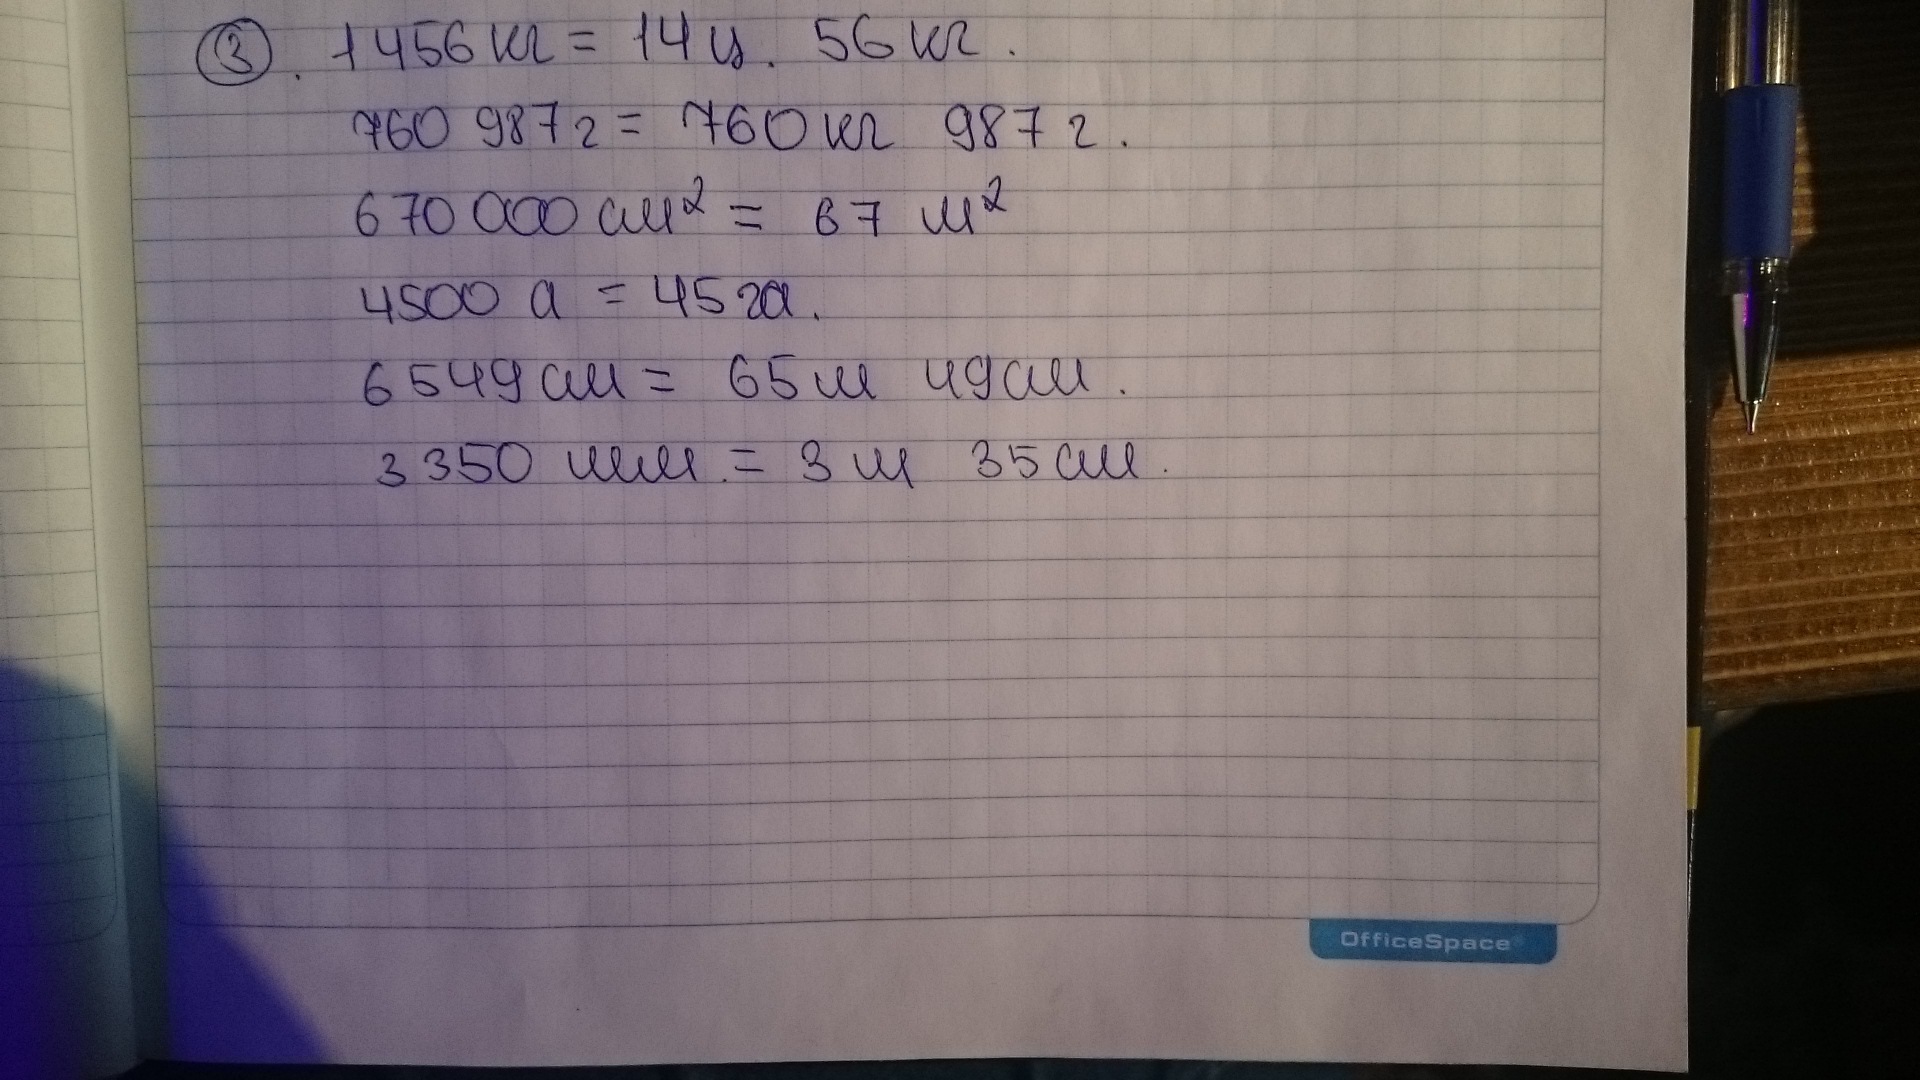 3. 1456 кг = 14 ц. 56 кг.
760 987 г = 760 кг 987 г.
670 000 см² = 67 м²
4500 а = 45 га.
6549 см = 65 м 49 см.
3350 мм. = 3 м 35 см.
OfficeSpace